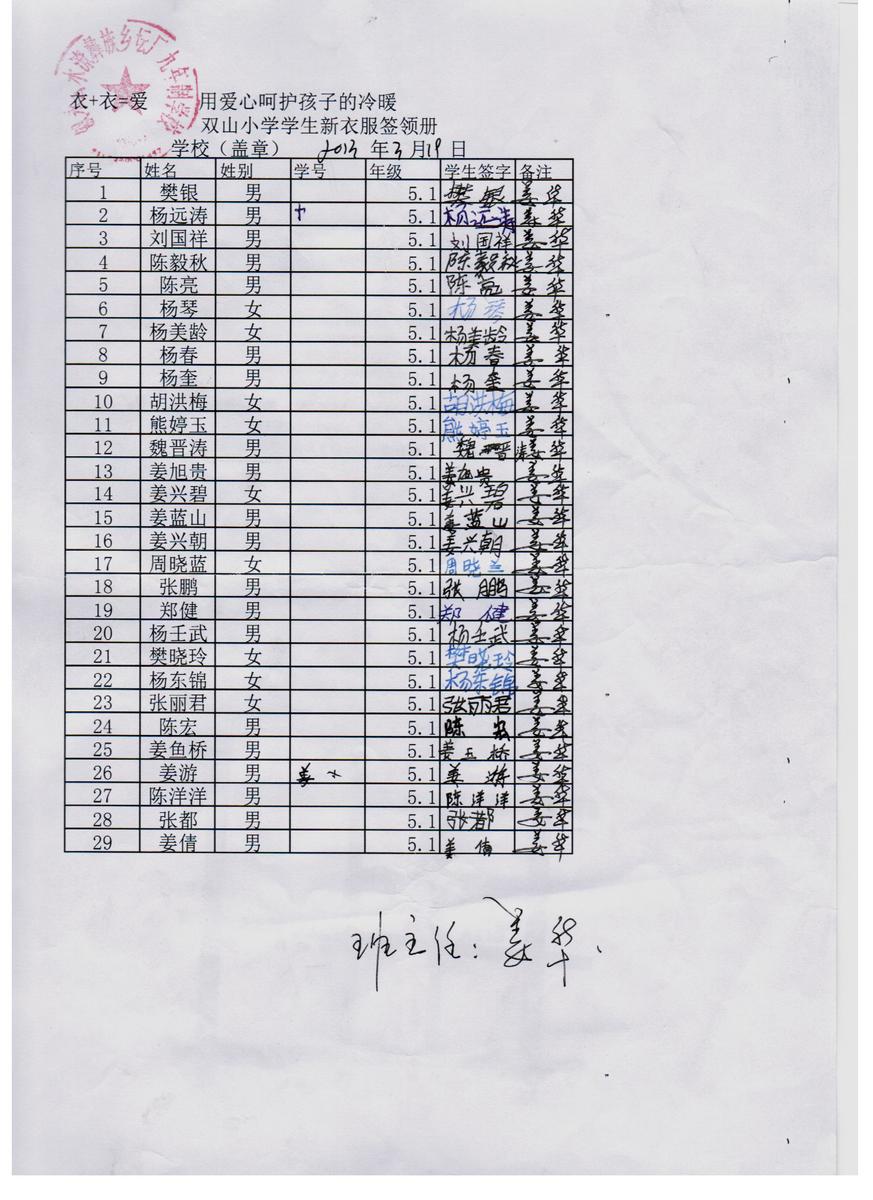 水漾彝族乡坛厂九年制学校
衣+衣=爱 用爱心呵护孩子的冷暖
双山小学学生新衣服签领册
学校（盖章） 2013 年 3 月 19 日
序号 姓名 姓别 学号 年级 学生签字 备注
1 樊银 男 5.1 樊银 姜华
2 杨远涛 男 5.1 杨远涛 姜华
3 刘国祥 男 5.1 刘国祥 姜华
4 陈毅秋 男 5.1 陈毅秋 姜华
5 陈亮 男 5.1 陈亮 姜华
6 杨琴 女 5.1 杨琴 姜华
7 杨美龄 女 5.1 杨美龄 姜华
8 杨春 男 5.1 杨春 姜华
9 杨奎 男 5.1 杨奎 姜华
10 胡洪梅 女 5.1 胡洪梅 姜华
11 熊婷玉 女 5.1 熊婷玉 姜华
12 魏晋涛 男 5.1 魏晋涛 姜华
13 姜旭贵 男 5.1 姜旭贵 姜华
14 姜兴碧 女 5.1 姜兴碧 姜华
15 姜蓝山 男 5.1 姜蓝山 姜华
16 姜兴朝 男 5.1 姜兴朝 姜华
17 周晓蓝 女 5.1 周晓兰 姜华
18 张鹏 男 5.1 张鹏 姜华
19 郑健 男 5.1 郑健 姜华
20 杨壬武 男 5.1 杨壬武 姜华
21 樊晓玲 女 5.1 樊晓玲 姜华
22 杨东锦 女 5.1 杨东锦 姜华
23 张丽君 女 5.1 张丽君 姜华
24 陈宏 男 5.1 陈宏 姜华
25 姜鱼桥 男 5.1 姜玉桥 姜华
26 姜游 男 姜 5.1 姜游 姜华
27 陈洋洋 男 5.1 陈洋洋 姜华
28 张都 男 5.1 张都 姜华
29 姜倩 男 5.1 姜倩 姜华
班主任：姜华